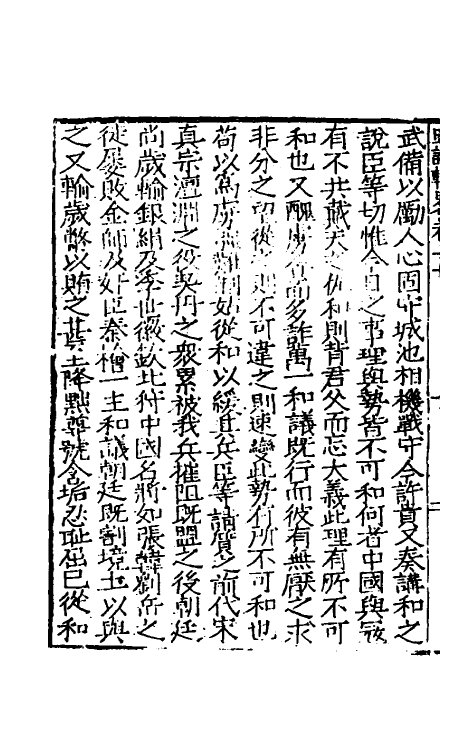 武備以勵人心固城池相機戰守今許貴又奏講和之
說臣等切惟今日之事理與勢皆不可和何者中國與寇
有不共戴天之仇和則背君父而忘大義此理有所不可
和也又醜虜貪而多詐萬一和議既行而彼有無厭之求
非分之望從之則不可違之則速變此勢有所不可和也
苟以為虜強難制姑從和以緩其兵臣等請質之前代宋
真宗澶淵之役契丹之衆累被我兵摧阻既盟之後朝廷
尚歲輸銀絹及季世徽欽北狩中國名將如張韓劉岳之
徒屢敗金師及奸臣秦檜一主和議朝廷既割境土以與
之又輸歲幣以賄之甚至降黜尊號含垢忍恥屈己從和